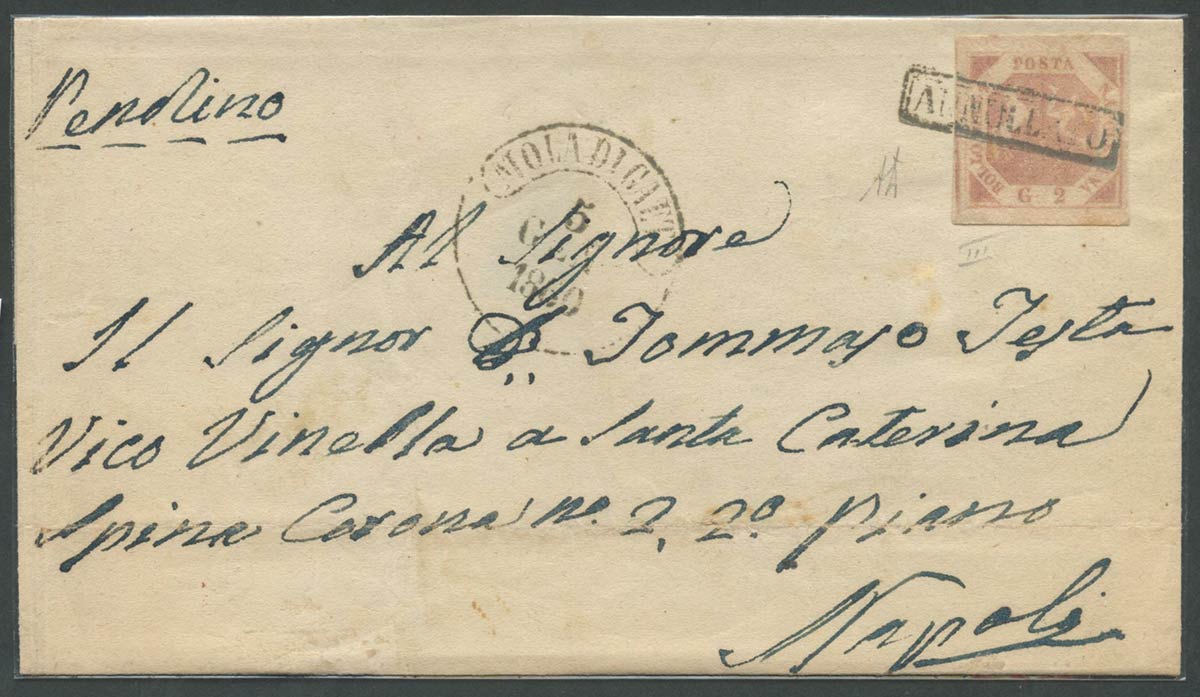 Pendino
POSTA
ANNULLATO
BOLLO
G 2
MOLA DI GAETA
5
GEN
1860
Al Signore
Il Signor D. Tommaso Testa
Vico Vinella a Santa Caterina
Spina Corona no. 2, 2o piano
Napoli
III